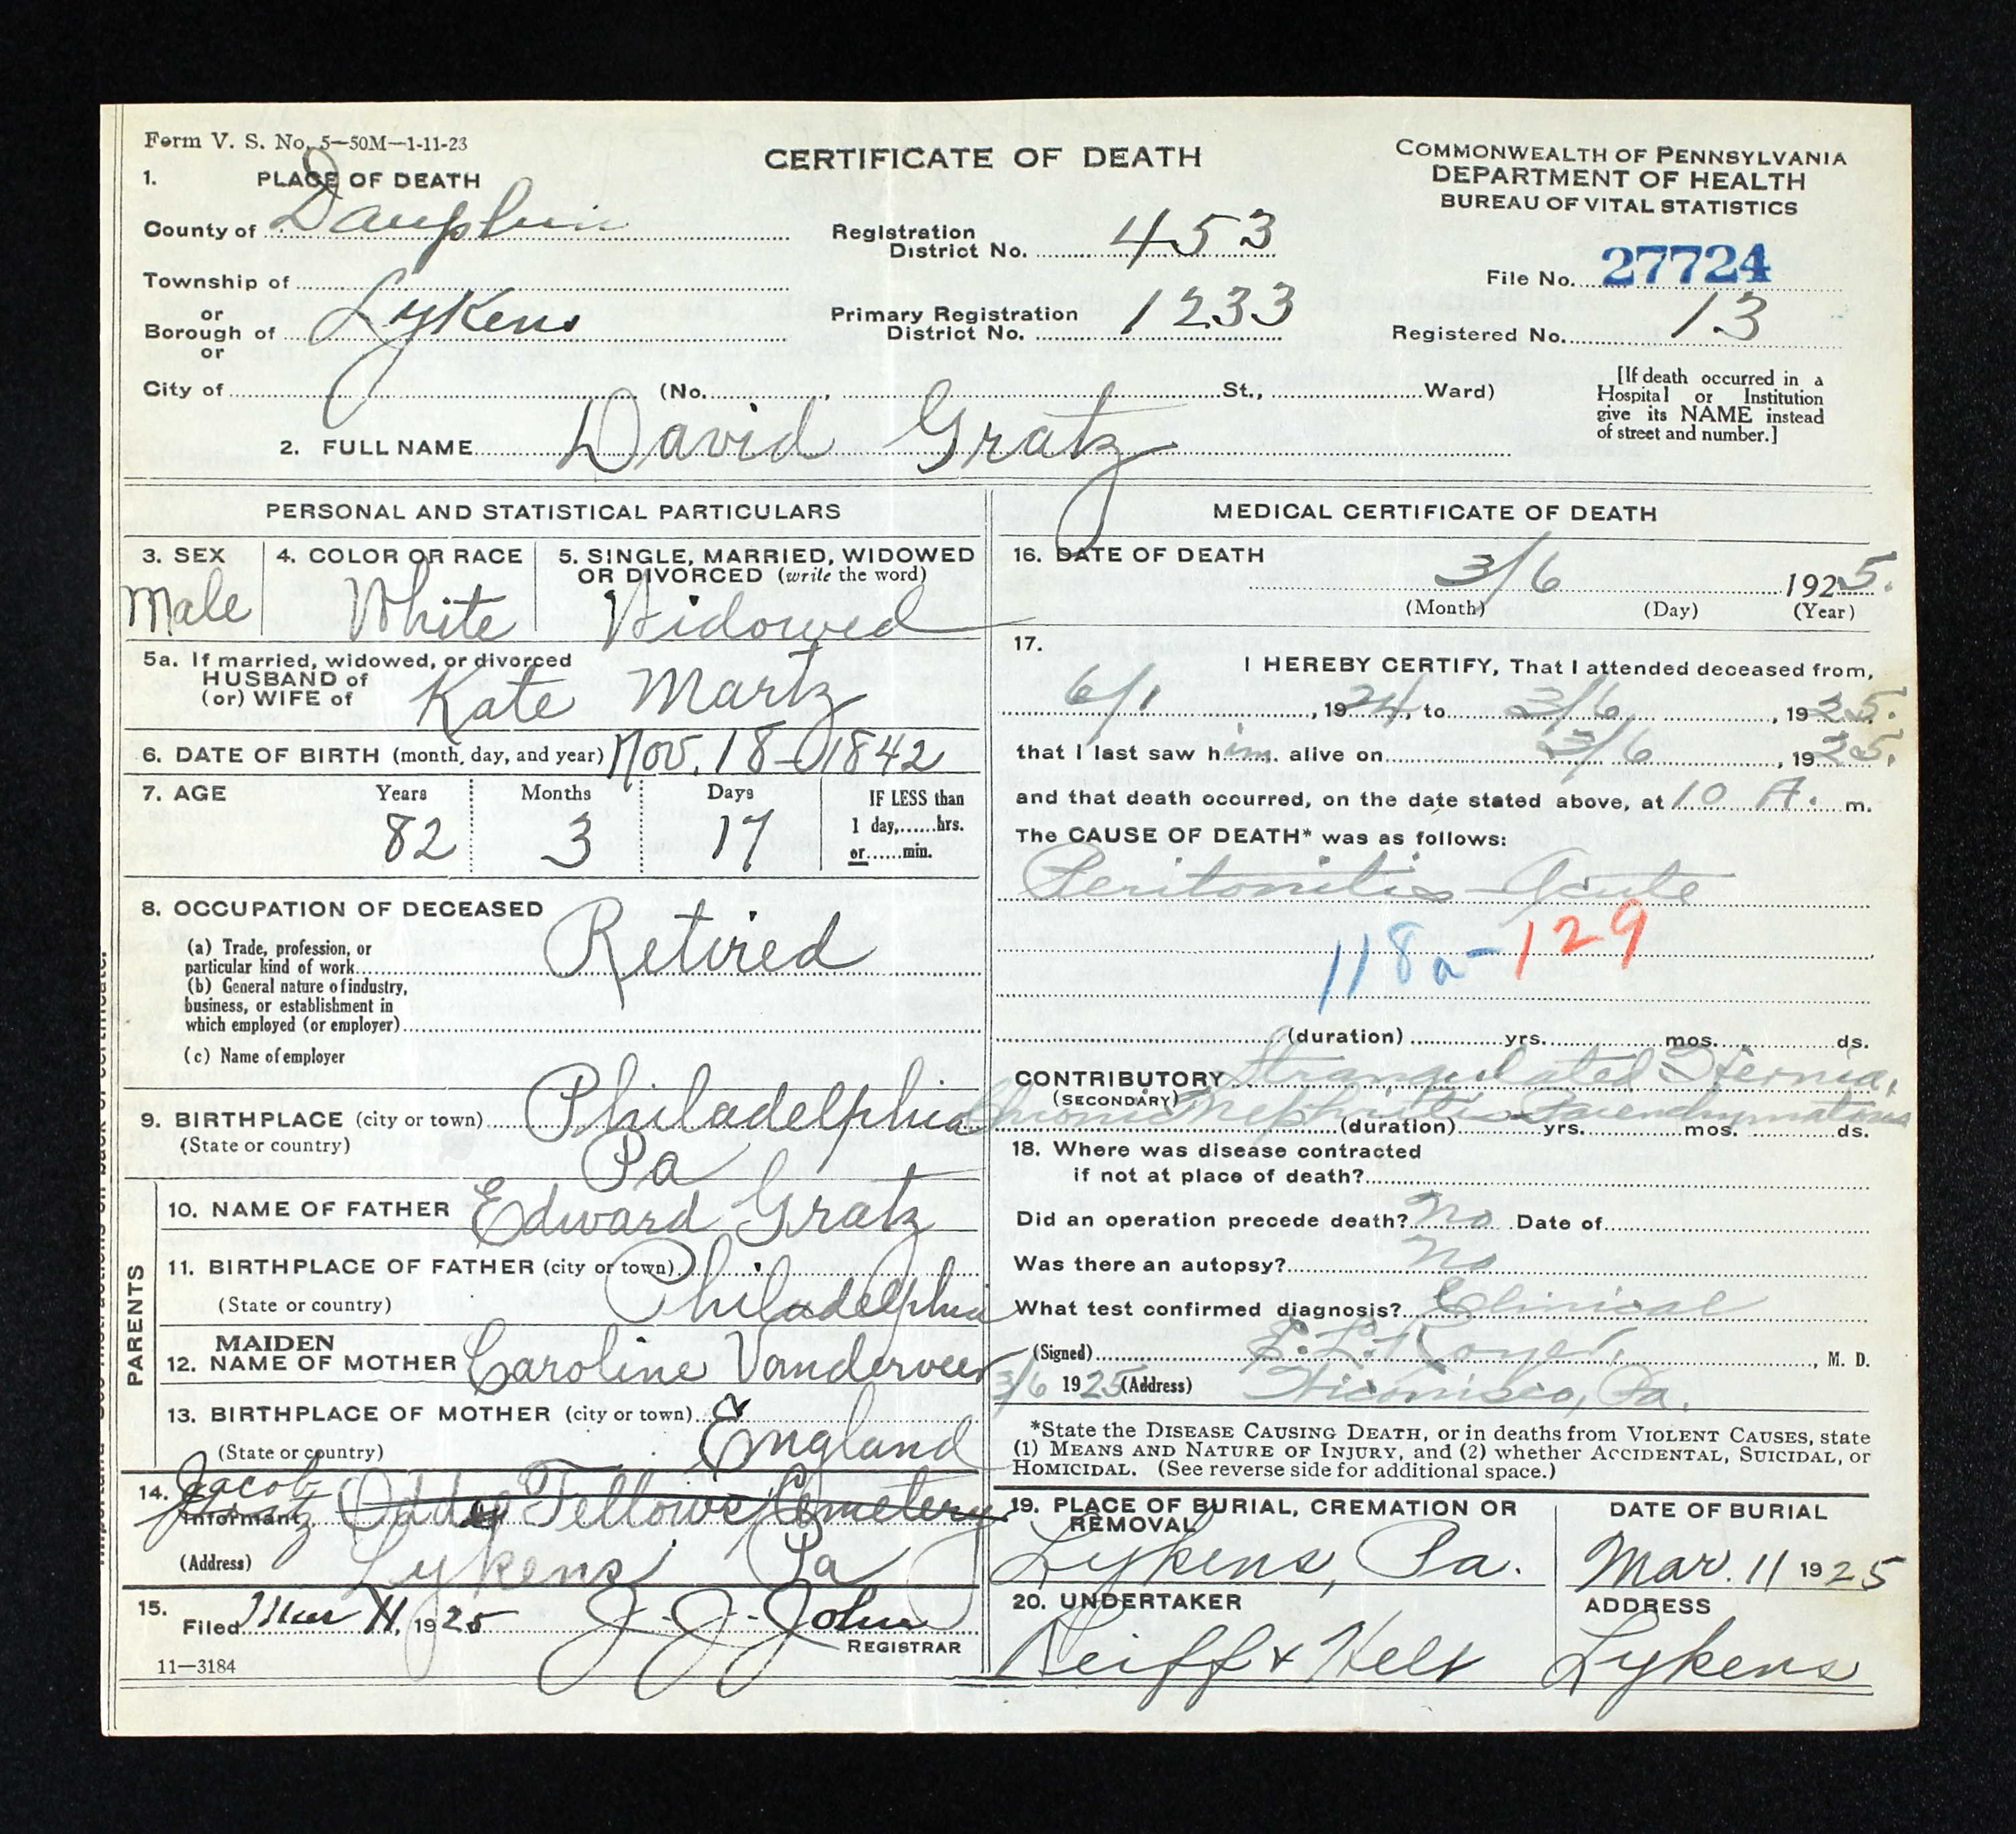 Form V. S. No. 5—50M—1-11-23
CERTIFICATE OF DEATH
COMMONWEALTH OF PENNSYLVANIA
DEPARTMENT OF HEALTH
BUREAU OF VITAL STATISTICS
1. PLACE OF DEATH
County of Dauphin
Registration District No. 453
File No. 27724
Township of
or Borough of Lykens
Primary Registration District No. 1233
Registered No. 13
or
City of (No. , St., Ward)
[If death occurred in a Hospital or Institution give its NAME instead of street and number.]
2. FULL NAME David Gratz
PERSONAL AND STATISTICAL PARTICULARS
3. SEX
Male
4. COLOR OR RACE
White
5. SINGLE, MARRIED, WIDOWED
OR DIVORCED (write the word)
Widowed
5a. If married, widowed, or divorced
HUSBAND of
(or) WIFE of Kate Martz
6. DATE OF BIRTH (month, day, and year) Nov. 18 - 1842
7. AGE Years Months Days IF LESS than
82 3 17 1 day,......hrs.
or......min.
8. OCCUPATION OF DECEASED
Retired
(a) Trade, profession, or
particular kind of work
(b) General nature of industry,
business, or establishment in
which employed (or employer)
(c) Name of employer
9. BIRTHPLACE (city or town) Philadelphia
(State or country) Pa
PARENTS
10. NAME OF FATHER Edward Gratz
11. BIRTHPLACE OF FATHER (city or town)
(State or country) Philadelphia
MAIDEN
12. NAME OF MOTHER Caroline Vanderveer
13. BIRTHPLACE OF MOTHER (city or town)
(State or country) England
14. Jacob
Informant Gratz Odd Fellows Cemetery
(Address) Lykens Pa
15. Filed Mar 11, 1925 J. J. John
REGISTRAR
11—3184
MEDICAL CERTIFICATE OF DEATH
16. DATE OF DEATH
3/6 1925.
(Month) (Day) (Year)
17.
I HEREBY CERTIFY, That I attended deceased from,
6/1, 1924, to 3/6, 1925.
that I last saw him alive on 3/6, 1925.
and that death occurred, on the date stated above, at 10 A. m.
The CAUSE OF DEATH* was as follows:
Peritonitis - Acute
118a - 129
(duration) yrs. mos. ds.
CONTRIBUTORY Strangulated Hernia,
(SECONDARY) Chronic Nephritis - Parenchymatous
(duration) yrs. mos. ds.
18. Where was disease contracted
if not at place of death?
Did an operation precede death? No Date of
Was there an autopsy? No
What test confirmed diagnosis? Clinical
(Signed) E. L. Royer, M. D.
3/6 1925 (Address) Wiconisco, Pa.
*State the DISEASE CAUSING DEATH, or in deaths from VIOLENT CAUSES, state
(1) MEANS AND NATURE OF INJURY, and (2) whether ACCIDENTAL, SUICIDAL, or
HOMICIDAL. (See reverse side for additional space.)
19. PLACE OF BURIAL, CREMATION OR
REMOVAL
Lykens, Pa.
DATE OF BURIAL
Mar. 11 1925
20. UNDERTAKER
Reiff & Helt
ADDRESS
Lykens